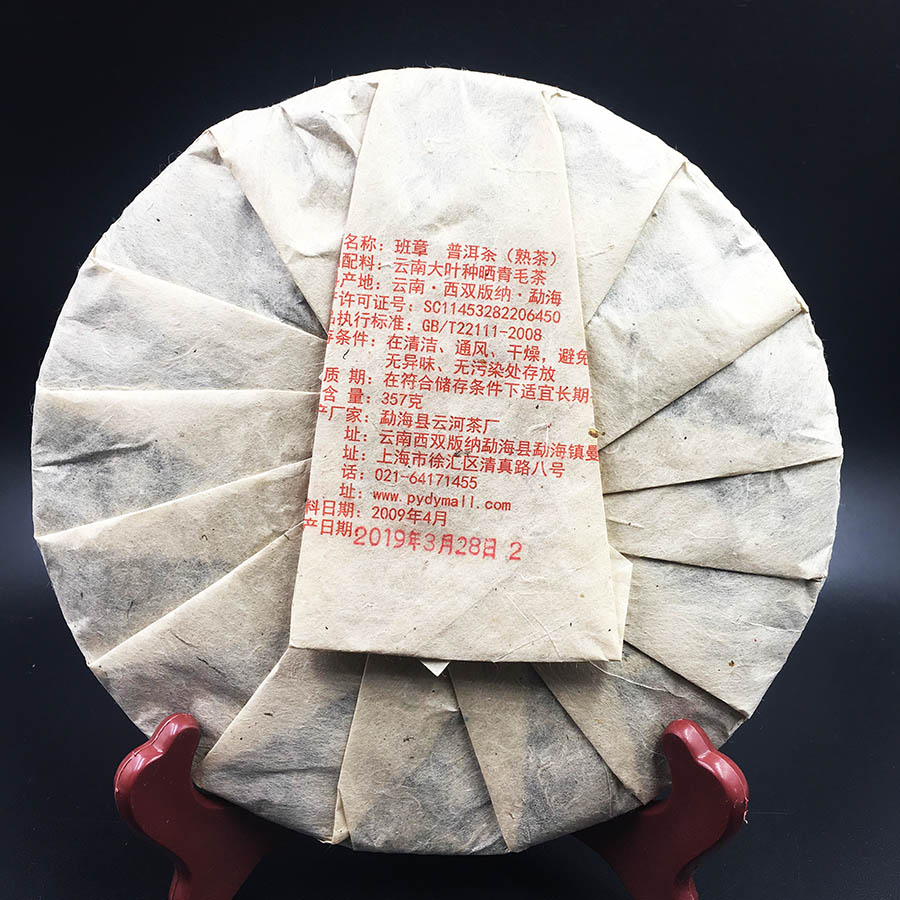 名称：班章 普洱茶（熟茶）
配料：云南大叶种晒青毛茶
产地：云南·西双版纳·勐海
许可证号：SC11453282206450
执行标准：GB/T22111-2008
条件：在清洁、通风、干燥，避免
无异味、无污染处存放
质 期：在符合储存条件下适宜长期
含 量：357克
产厂家：勐海县云河茶厂
址：云南西双版纳勐海县勐海镇曼
址：上海市徐汇区清真路八号
话：021-64171455
址：www.pydymall.com
料日期：2009年4月
产日期：2019年3月28日 2